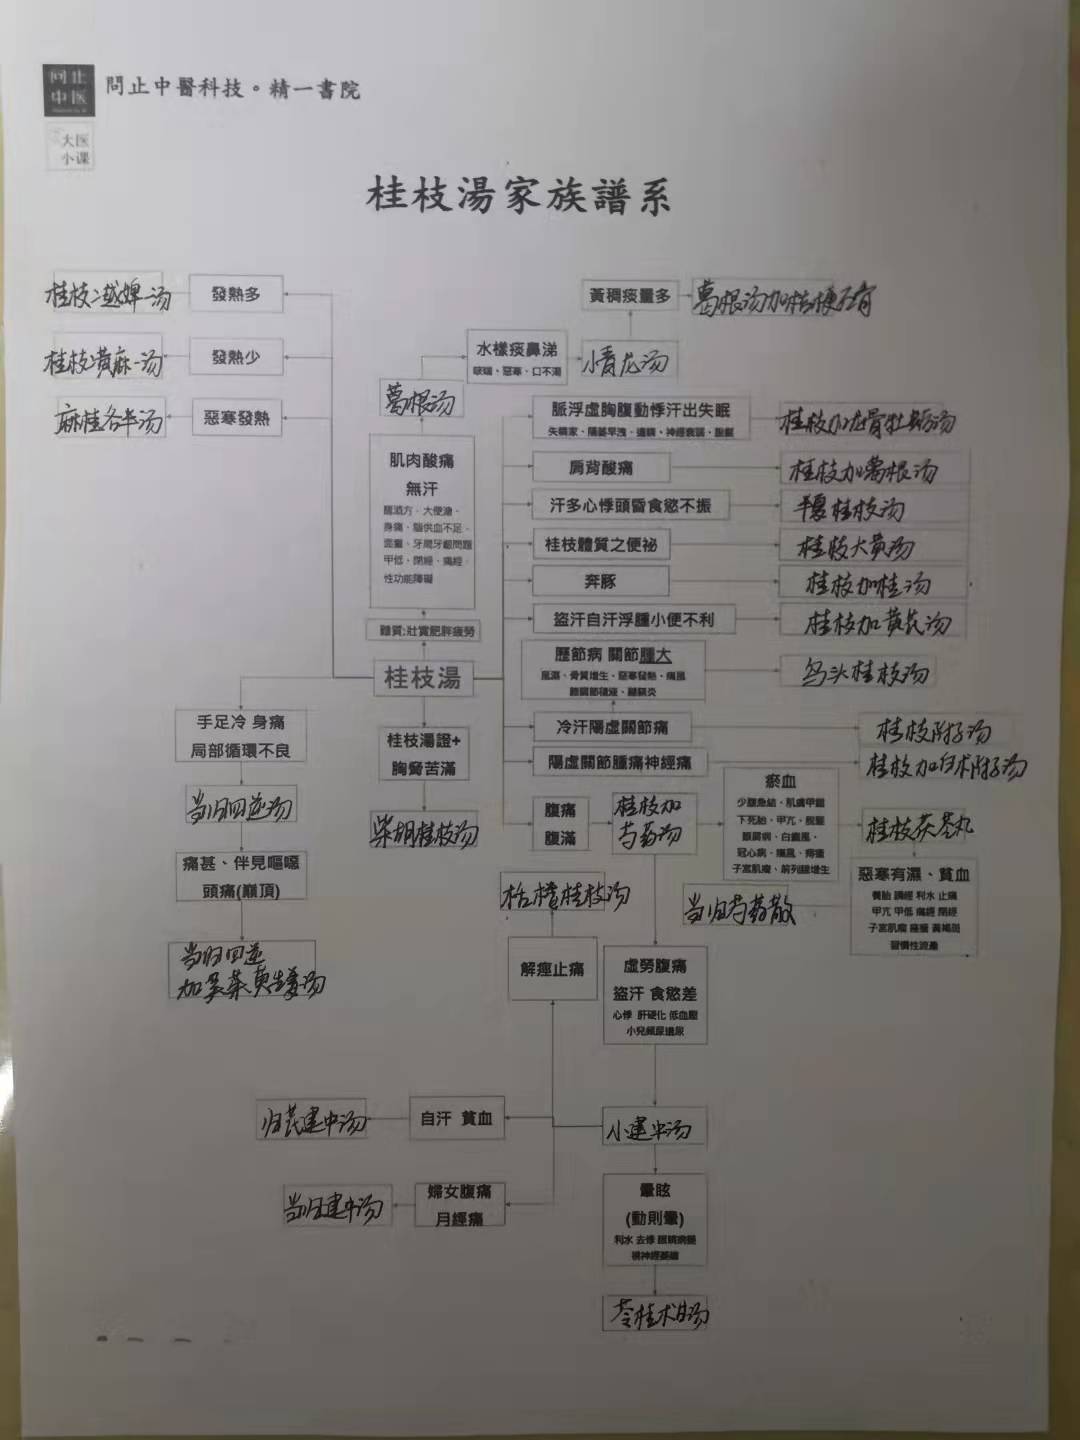 问止
中医
問止中醫科技。精一書院
大医
小课
桂枝湯家族譜系
桂枝二越婢一汤
發熱多
黃稠痰量多
葛根汤加桔梗石膏
桂枝二麻一汤
發熱少
水樣痰鼻涕
咳喘、惡寒、口不渴
小青龙汤
麻桂各半汤
惡寒發熱
葛根汤
肌肉酸痛
無汗
醒酒方、大便溏、
身痛、腦供血不足、
面癱、牙周牙齦問題
甲低、閉經、痛經、
性功能障礙
體質:壯實肥胖疲勞
桂枝湯
脈浮虛胸腹動悸汗出失眠
失精家、陽萎早洩、遺精、神經衰弱、脫髮
桂枝加龙骨牡蛎汤
肩背酸痛
桂枝加葛根汤
汗多心悸頭昏食慾不振
半夏桂枝汤
桂枝體質之便祕
桂枝大黄汤
奔豚
桂枝加桂汤
盜汗自汗浮腫小便不利
桂枝加黄芪汤
歷節病 關節腫大
風濕、骨質增生、惡寒發熱、痛風
膝關節積液、腱鞘炎
乌头桂枝汤
冷汗陽虛關節痛
桂枝附子汤
陽虛關節腫痛神經痛
桂枝加白术附子汤
手足冷 身痛
局部循環不良
当归四逆汤
痛甚、伴見嘔噁
頭痛(巔頂)
当归四逆
加吴茱萸生姜汤
桂枝湯證+
胸脅苦滿
柴胡桂枝汤
腹痛
腹滿
桂枝加
芍药汤
瘀血
少腹急結、肌膚甲錯
下死胎、甲亢、脫髮
眼屬病、白癜風、
冠心病、痛風、痔瘡
子宮肌瘤、前列腺增生
桂枝茯苓丸
惡寒有濕、貧血
養胎 調經 利水 止痛
甲亢 甲低 痛經 閉經
子宮肌瘤 痤瘡 黃褐斑
習慣性流產
当归芍药散
栝楼桂枝汤
解痙止痛
虛勞腹痛
盜汗 食慾差
心悸 肝硬化 低血壓
小兒頻尿遺尿
归芪建中汤
自汗 貧血
小建中汤
当归建中汤
婦女腹痛
月經痛
暈眩
(動則暈)
利水 去悸 眼睛病變
視神經萎縮
苓桂术甘汤